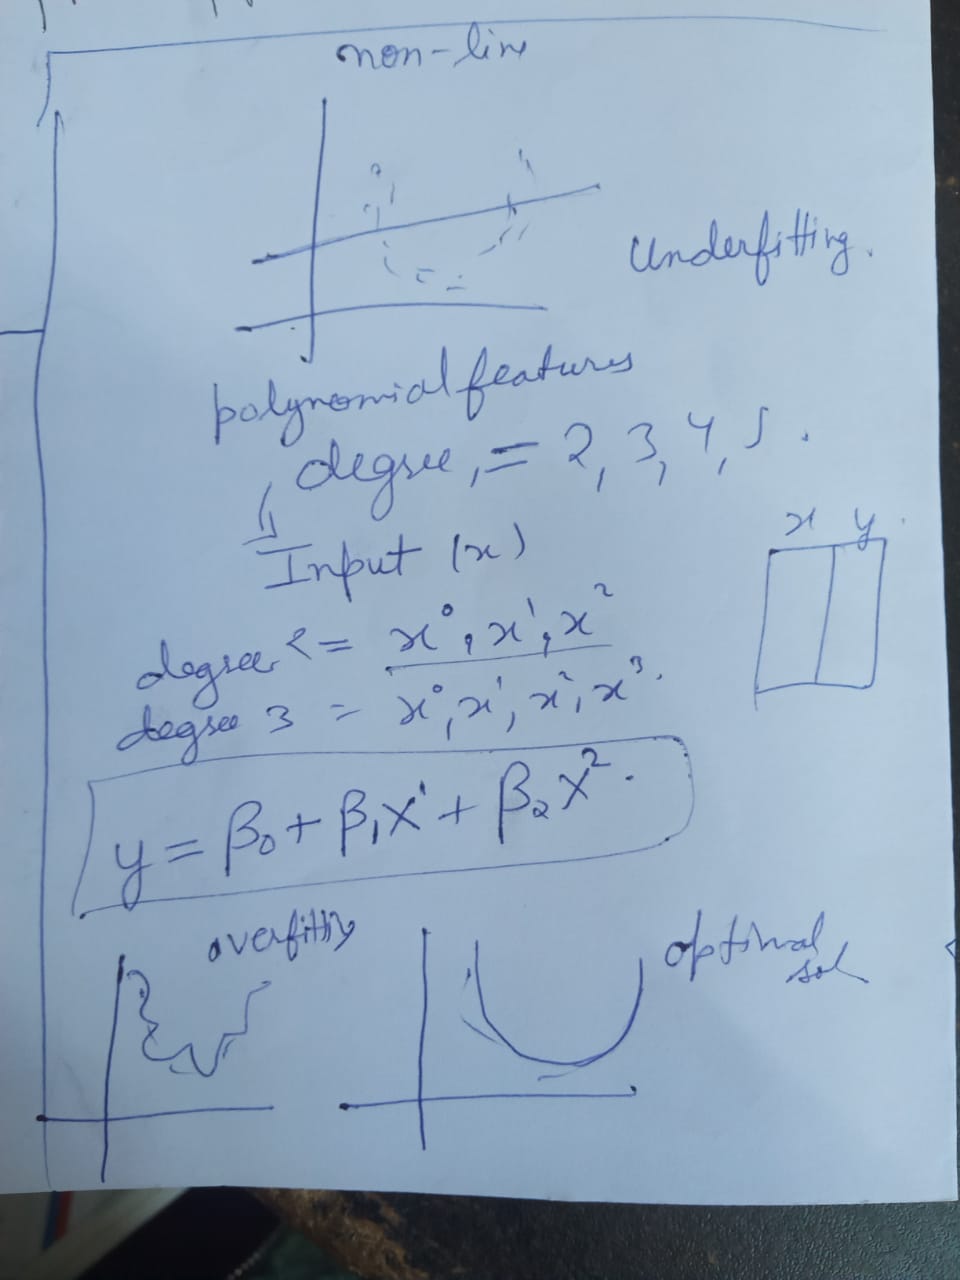 non-line
Underfitting.
polynomial features
degree, = 2, 3, 4, 5.
Input (x)
x y.
degree 2 = x⁰, x¹, x²
degree 3 = x⁰, x¹, x², x³.
y = β₀ + β₁X¹ + β₂X².
overfittiy
optimal
sol